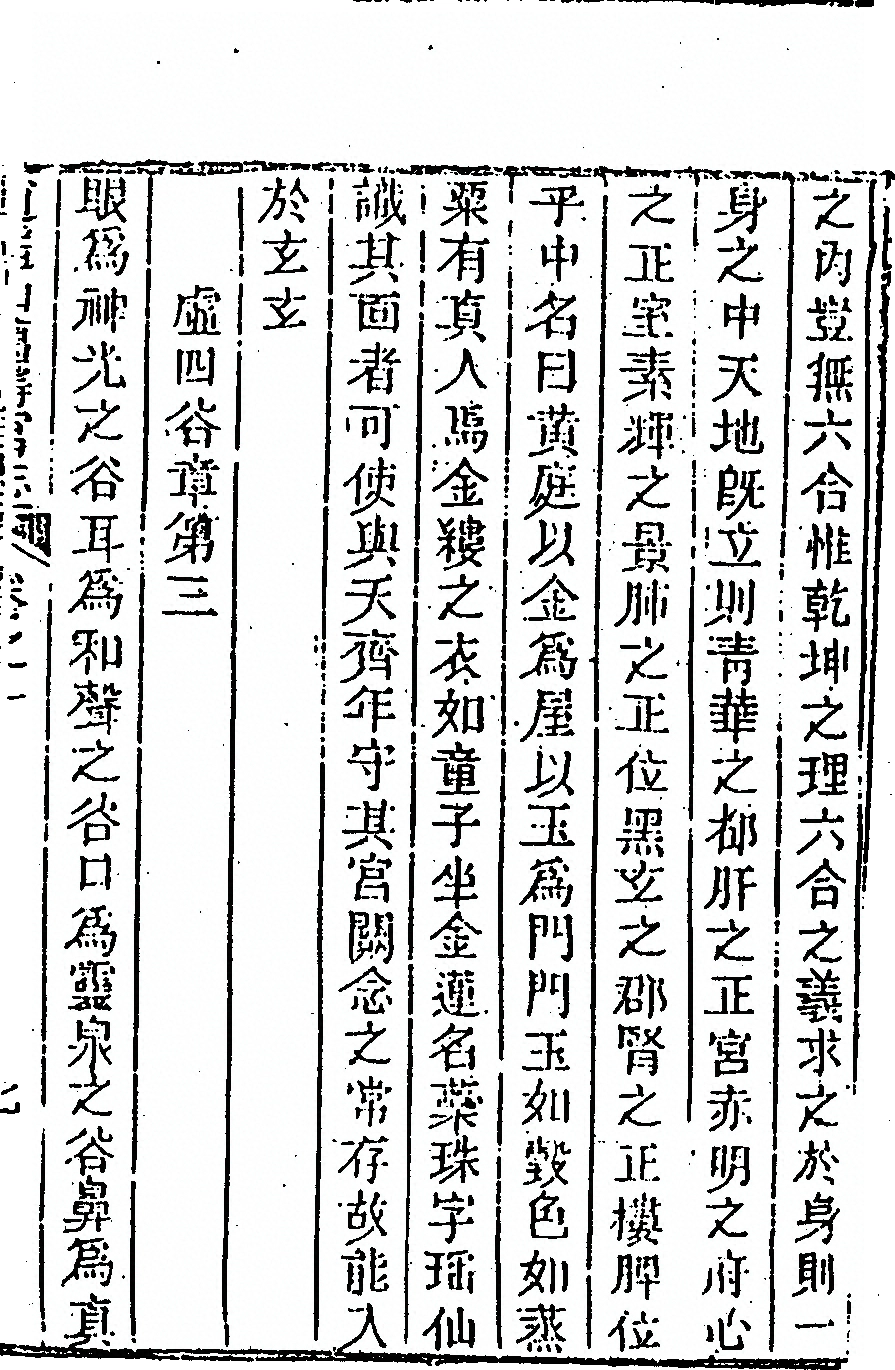 之內豈無六合惟乾坤之理六合之義求之於身則一
身之中天地旣立則青華之都肝之正宮赤明之府心
之正室素輝之景肺之正位黑玄之郡腎之正樓脾位
乎中名曰黃庭以金爲屋以玉爲門門玉如瑿色如蒸
粟有真人焉金縷之衣如童子坐金蓮名蘂珠字瑶仙
識其面者可使與天齊年守其宮闕念之常存故能入
於玄玄
虛四谷章第三
眼爲神光之谷耳爲和聲之谷口爲靈泉之谷鼻爲真